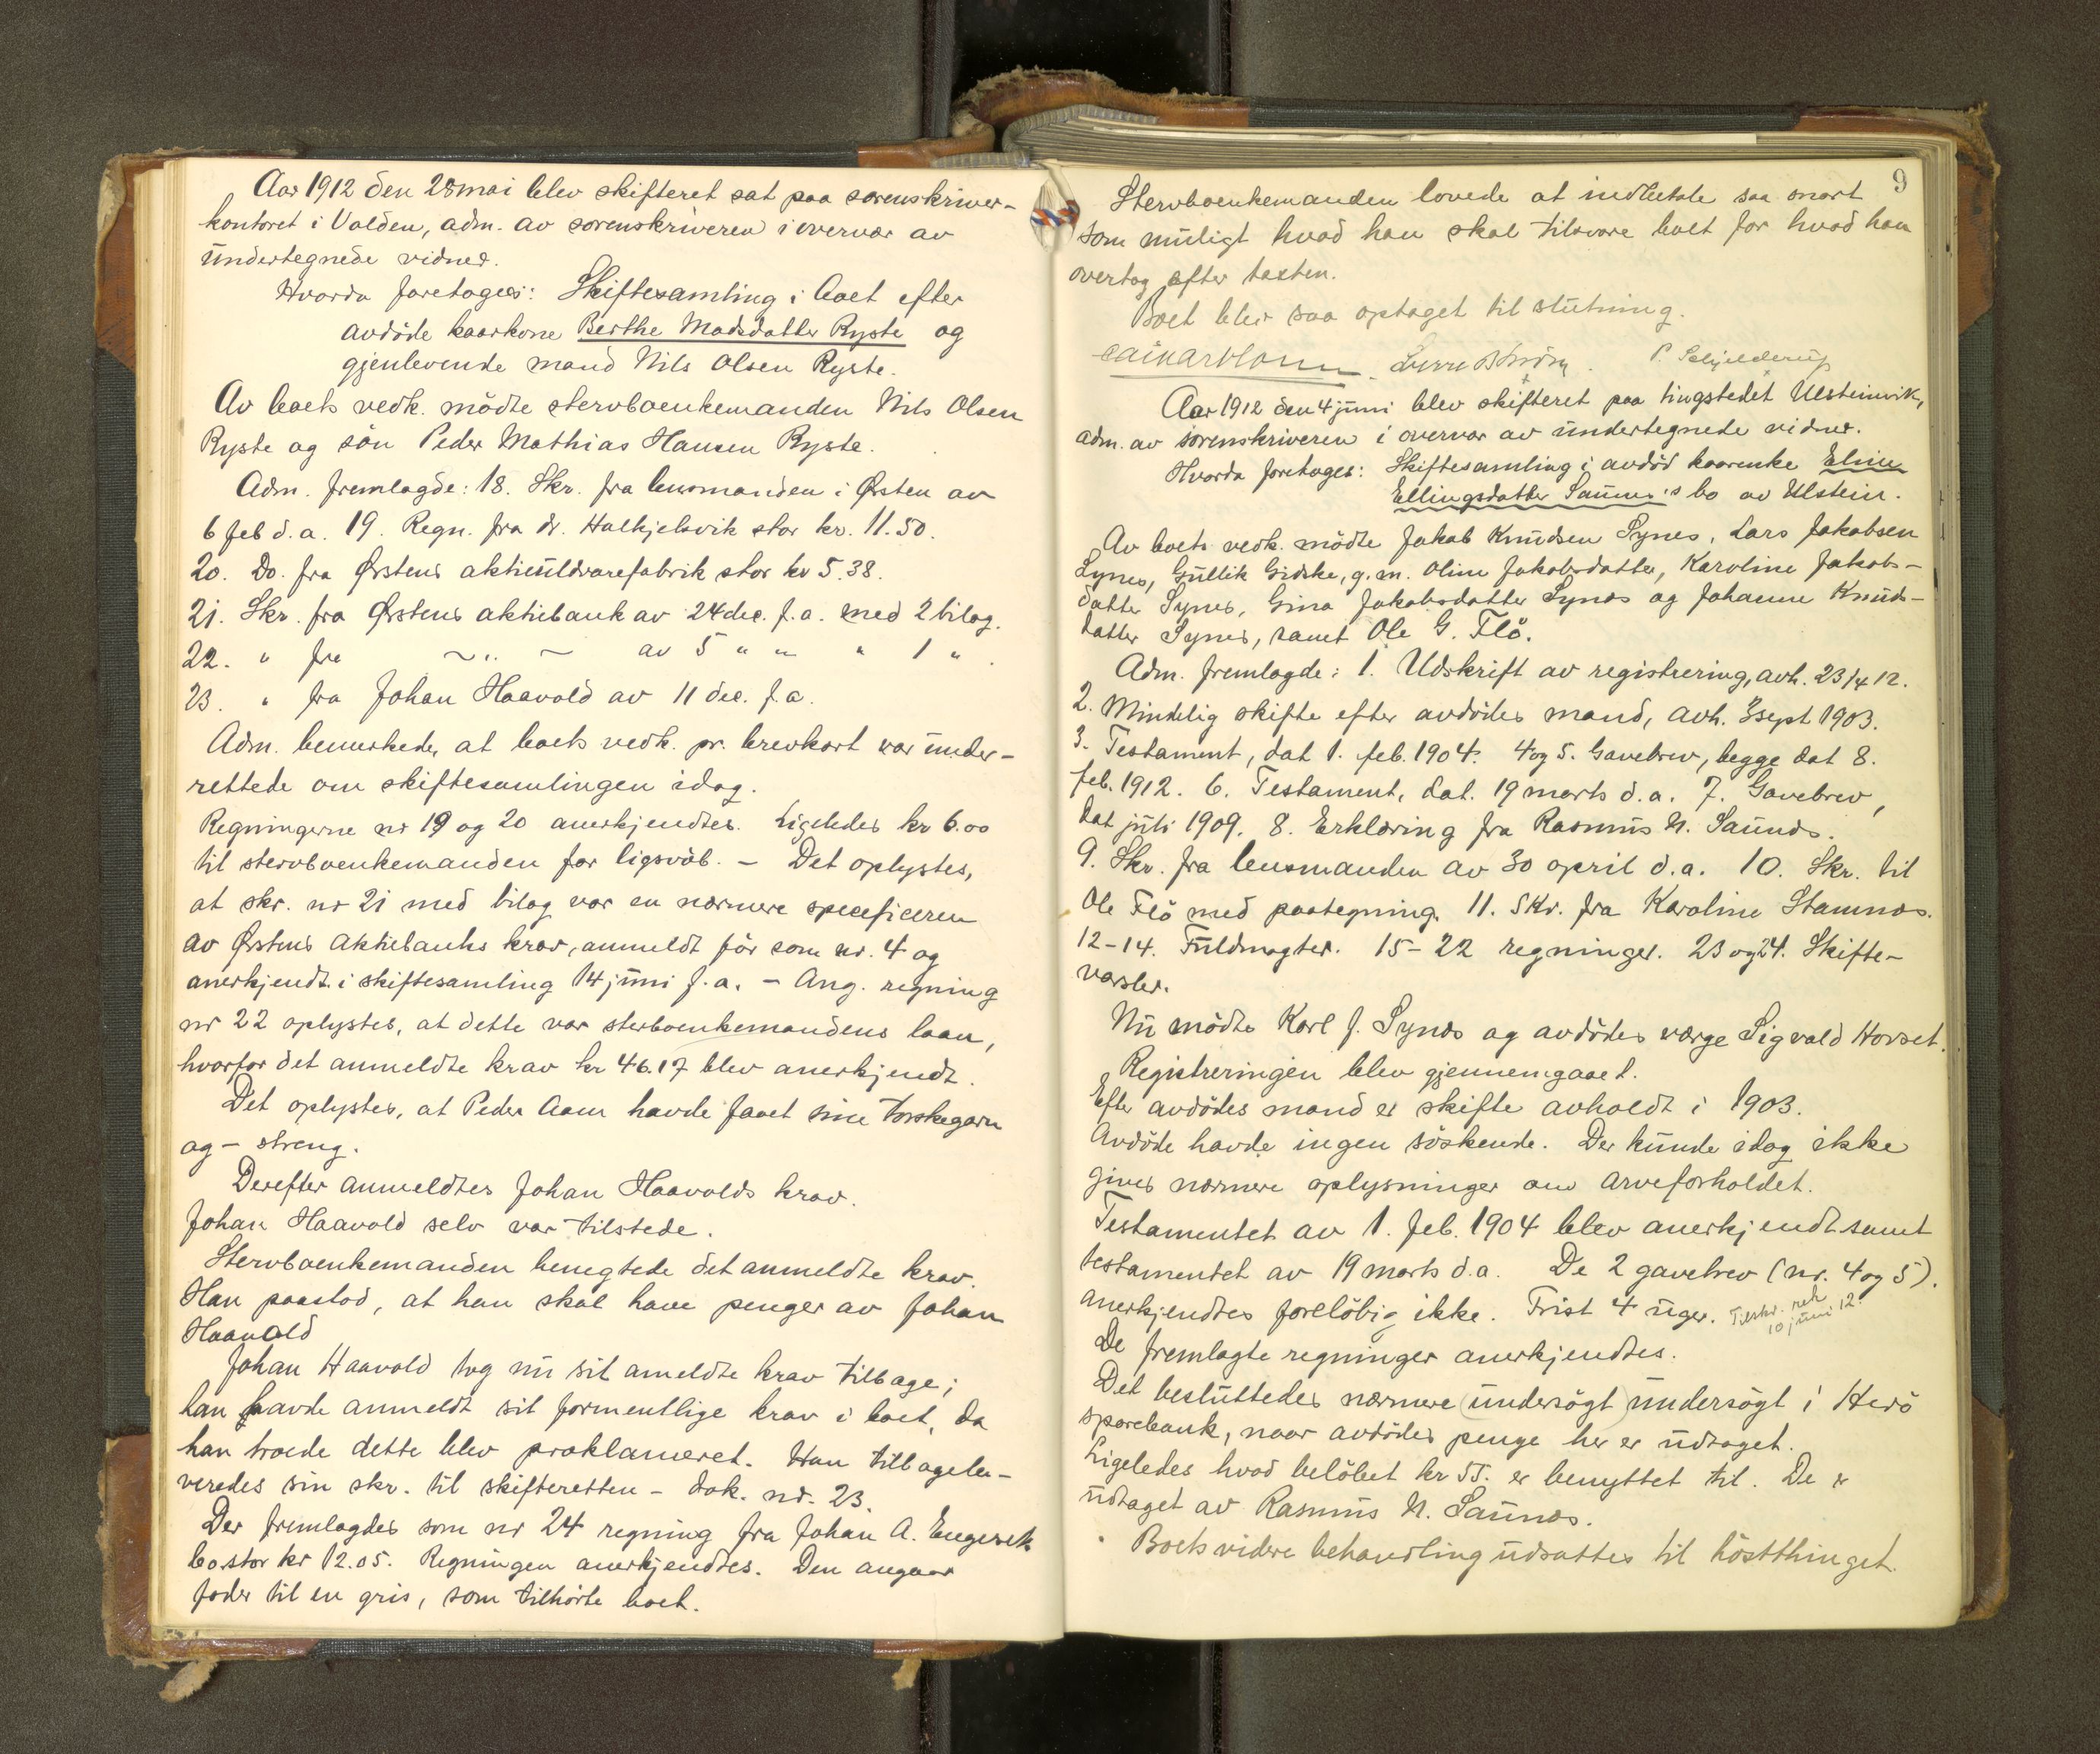 Aar 1912 den 28 mai blev skifteret sat paa sorenskriver-
kontoret i Volden, adm. av sorenskriveren i overvær av
undertegnede vidner.
Hvorda foretoges: Skiftesamling i boet efter
avdöde kaarkone Berthe Madsdatter Ryste og
gjenlevende mand Nils Olsen Ryste.
Av boets vedk. mödte stervboenkemanden Nils Olsen
Ryste og sön Peder Mathias Hansen Ryste.
Adm. fremlagde: 18. Skr. fra lensmanden i Ørsten av
6 feb d.a. 19. Regn. fra dr. Halkjelsvik stor kr. 11.50.
20. Do. fra Ørstens aktieuldvarefabrik stor kr 5.38.
21. Skr. fra Ørstens aktiebank av 24 dec. f.a. med 2 bilag.
22. " fra ~ " ~ av 5 " " " 1 " .
23. " fra Johan Haavold av 11 dec. f.a.
Adm. bemerkede, at boets vedk. pr. brevkort var under-
rettede om skiftesamlingen idag.
Regningerne nr 19 og 20 anerkjendtes. Ligeledes kr 6.00
til stervboenkemanden for ligsvöb. - Det oplystes,
at skr. nr 21 med bilag var en nærmere specificeren
av Ørstens Aktiebanks krav, anmeldt för som nr. 4 og
anerkjendt i skiftesamling 14 juni f.a. - Ang. regning
nr 22 oplystes, at dette var sterboenkemandens laan,
hvorfor det anmeldte krav kr 46.17 blev anerkjendt.
Det oplystes, at Peder Aam havde faaet sine torskegarn
og - streng.
Derefter anmeldtes Johan Haavolds krav.
Johan Haavold selv var tilstede.
Stervboenkemanden benegtede det anmeldte krav.
Han paastod, at han skal have penger av Johan
Haavold
Johan Haavold tog nu sit ameldte krav tilbage;
han havde anmeldt sit formentlige krav i boet, da
han troede dette blev proklameret. Han tilbagele-
veredes sin skr. til skifteretten - dok. nr. 23.
Der fremlagdes som nr 24 regning fra Johan A. Engeset
bo stor kr 12.05. Regningen anerkjendtes. Den angaar
foder til en gris, som tilhörte boet.
9
Stervboenkemanden lovede at indbetale saa snart
som muligt hvad han skal tilsvare boet for hvad han
overtog efter taxten.
Boet blev saa optaget til slutning.
P. Schjelderup
Aar 1912 den 4 juni blev skifteret paa tingstedet Ulsteinvik,
adm. av sorenskriveren i overvær av undertegnede vidner.
Hvorda foretoges: Skiftesamling i avdöd kaarenke Eline
Ellingsdatter Saunes's bo av Ulstein.
Av boets vedk. mödte Jakob Knudsen Synes, Lars Jakobsen
Synes, Gullik Gidske, g.m. Oline Jakobsdatter, Karoline Jakobs-
datter Synes, Gina Jakobsdatter Synes og Johanne Knuds-
datter Synes, samt Ole G. Flö.
Adm. fremlagde: 1. Udskrift av registrering, avh. 23/4 12.
2. Mindelig skifte efter avdödes mand, avh. 3 sept 1903.
3. Testament, dat 1. feb. 1904. 4 og 5. Gavebrev, begge dat 8.
feb. 1912. 6. Testament, dat. 19 marts d.a. 7. Gavebrev,
dat juli 1909. 8. Erklæring fra Rasmus N. Saunes.
9. Skr. fra lensmanden av 30 april d.a. 10. Skr. til
Ole Flö med paategning. 11. Skr. fra Karoline Stamnes.
12-14. Fuldmagter. 15-22 regninger. 23 og 24. Skifte-
varsler.
Nu mödte Karl J. Synes og avdödes værge Sigvald Hovset.
Registreringen blev gjennemgaaet.
Efter avdödes mand er skifte avholdt i 1903.
Avdöde havde ingen söskende. Der kunde idag ikke
gives nærmere oplysninger om arveforholdet.
Testamentet av 1. feb. 1904 blev anerkjendt samt
testamentet av 19 marts d.a. De 2 gavebrev (nr. 4 og 5).
anerkjendtes forelöbig ikke. Frist 4 uger. Tilskr. rek
10 juni 12.
De fremlagte regninger anerkjendtes.
Det besluttedes nærmere (undersögt) undersögt i Herö
sparebank, naar avdödes penge her er udtaget.
Ligeledes hvad belöbet kr 55. er benyttet til. De er
udtaget av Rasmus N. Saunes.
Boets videre behandling udsattes til höstthinget.